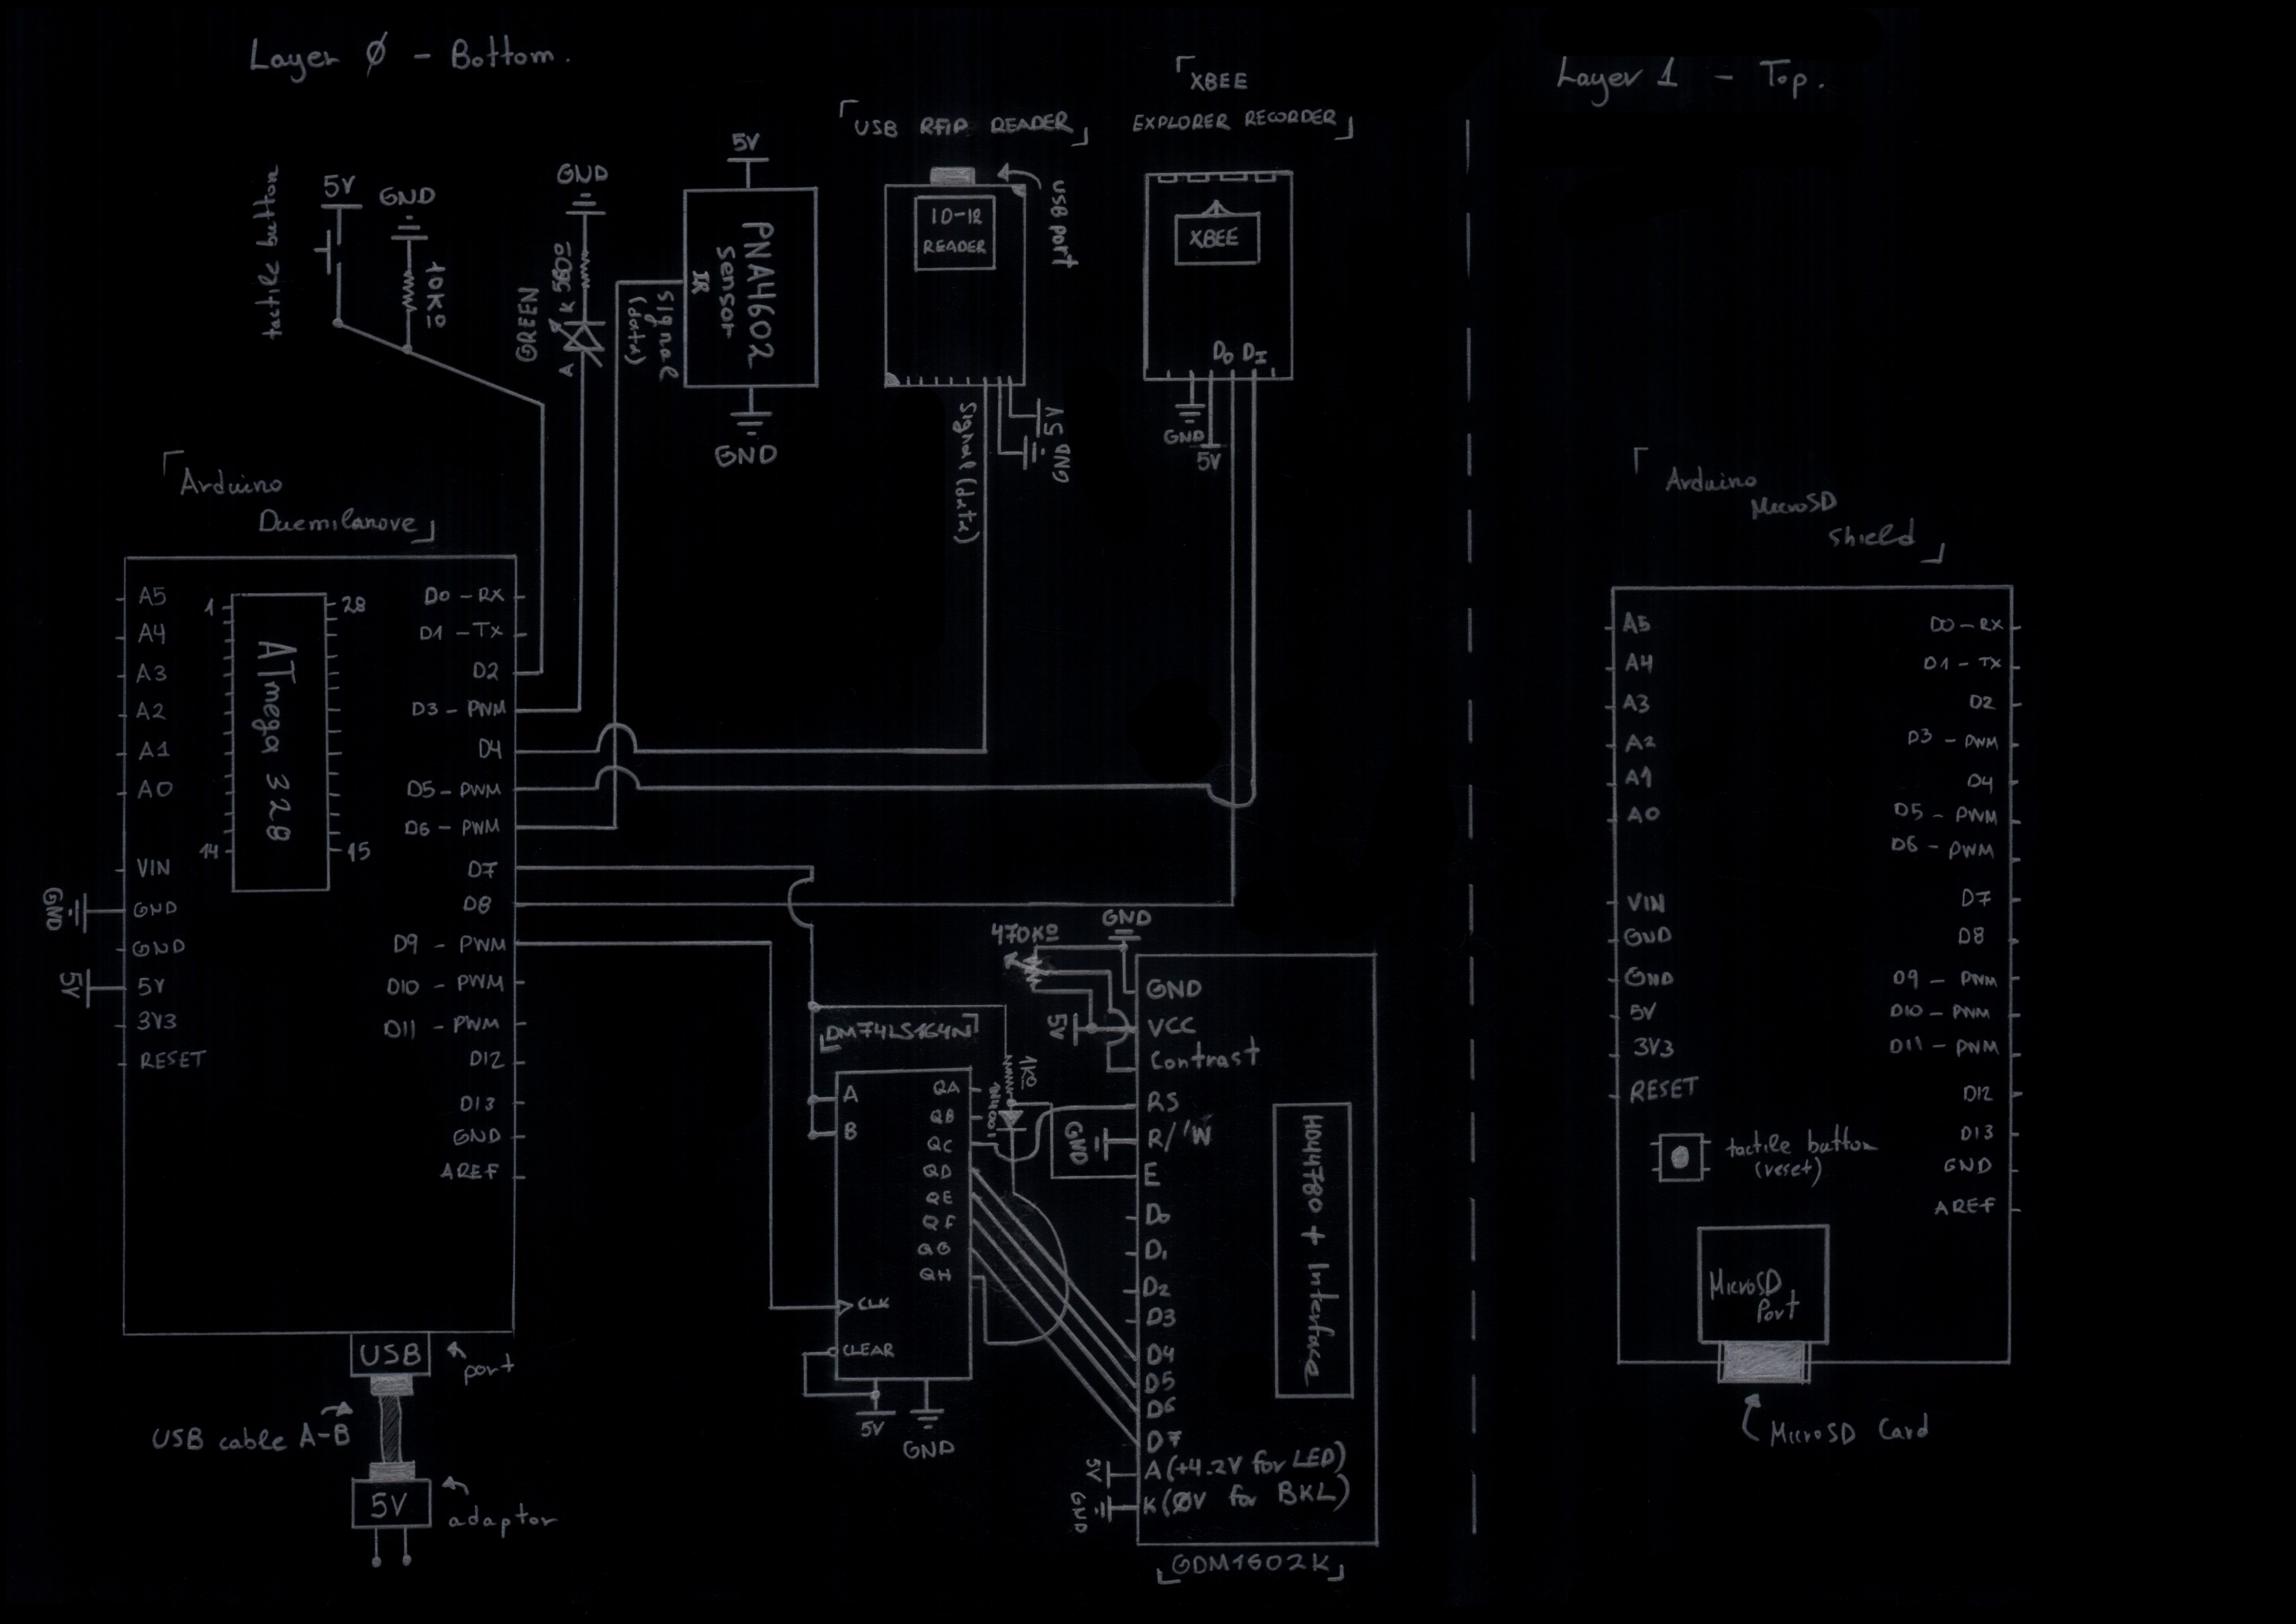 Layer Ø - Bottom.
Layer 1 - Top.
「XBEE
EXPLORER RECORDER」
「USB RFID READER」
tactile button
5V
GND
10KΩ
GND
K 580Ω
GREEN
A
5V
PNA4602
IR sensor
signal
(data)
GND
USB port
ID-12
READER
signal (data)
5V
GND
XBEE
Do DI
GND
5V
「Arduino
Duemilanove」
A5
A4
A3
A2
A1
A0
VIN
GND
GND
GND
5V
5V
3V3
RESET
1
28
ATmega 328
14
15
D0 - RX
D1 - TX
D2
D3 - PWM
D4
D5 - PWM
D6 - PWM
D7
D8
D9 - PWM
D10 - PWM
D11 - PWM
D12
D13
GND
AREF
USB
port
USB cable A-B
5V
adaptor
「DM74LS164N」
A
B
CLK
CLEAR
QA
QB
QC
QD
QE
QF
QG
QH
5V
GND
1KΩ
1N4001
470KΩ
GND
5V
GND
GND
VCC
Contrast
RS
R/'W
E
D0
D1
D2
D3
D4
D5
D6
D7
5V
A (+4.2V for LED)
GND
K (ØV for BKL)
HD44780 + Interface
「GDM1602K」
「Arduino
MicroSD
Shield」
A5
A4
A3
A2
A1
A0
VIN
GND
GND
5V
3V3
RESET
D0 - RX
D1 - TX
D2
D3 - PWM
D4
D5 - PWM
D6 - PWM
D7
D8
D9 - PWM
D10 - PWM
D11 - PWM
D12
D13
GND
AREF
tactile button
(reset)
MicroSD
Port
MicroSD Card